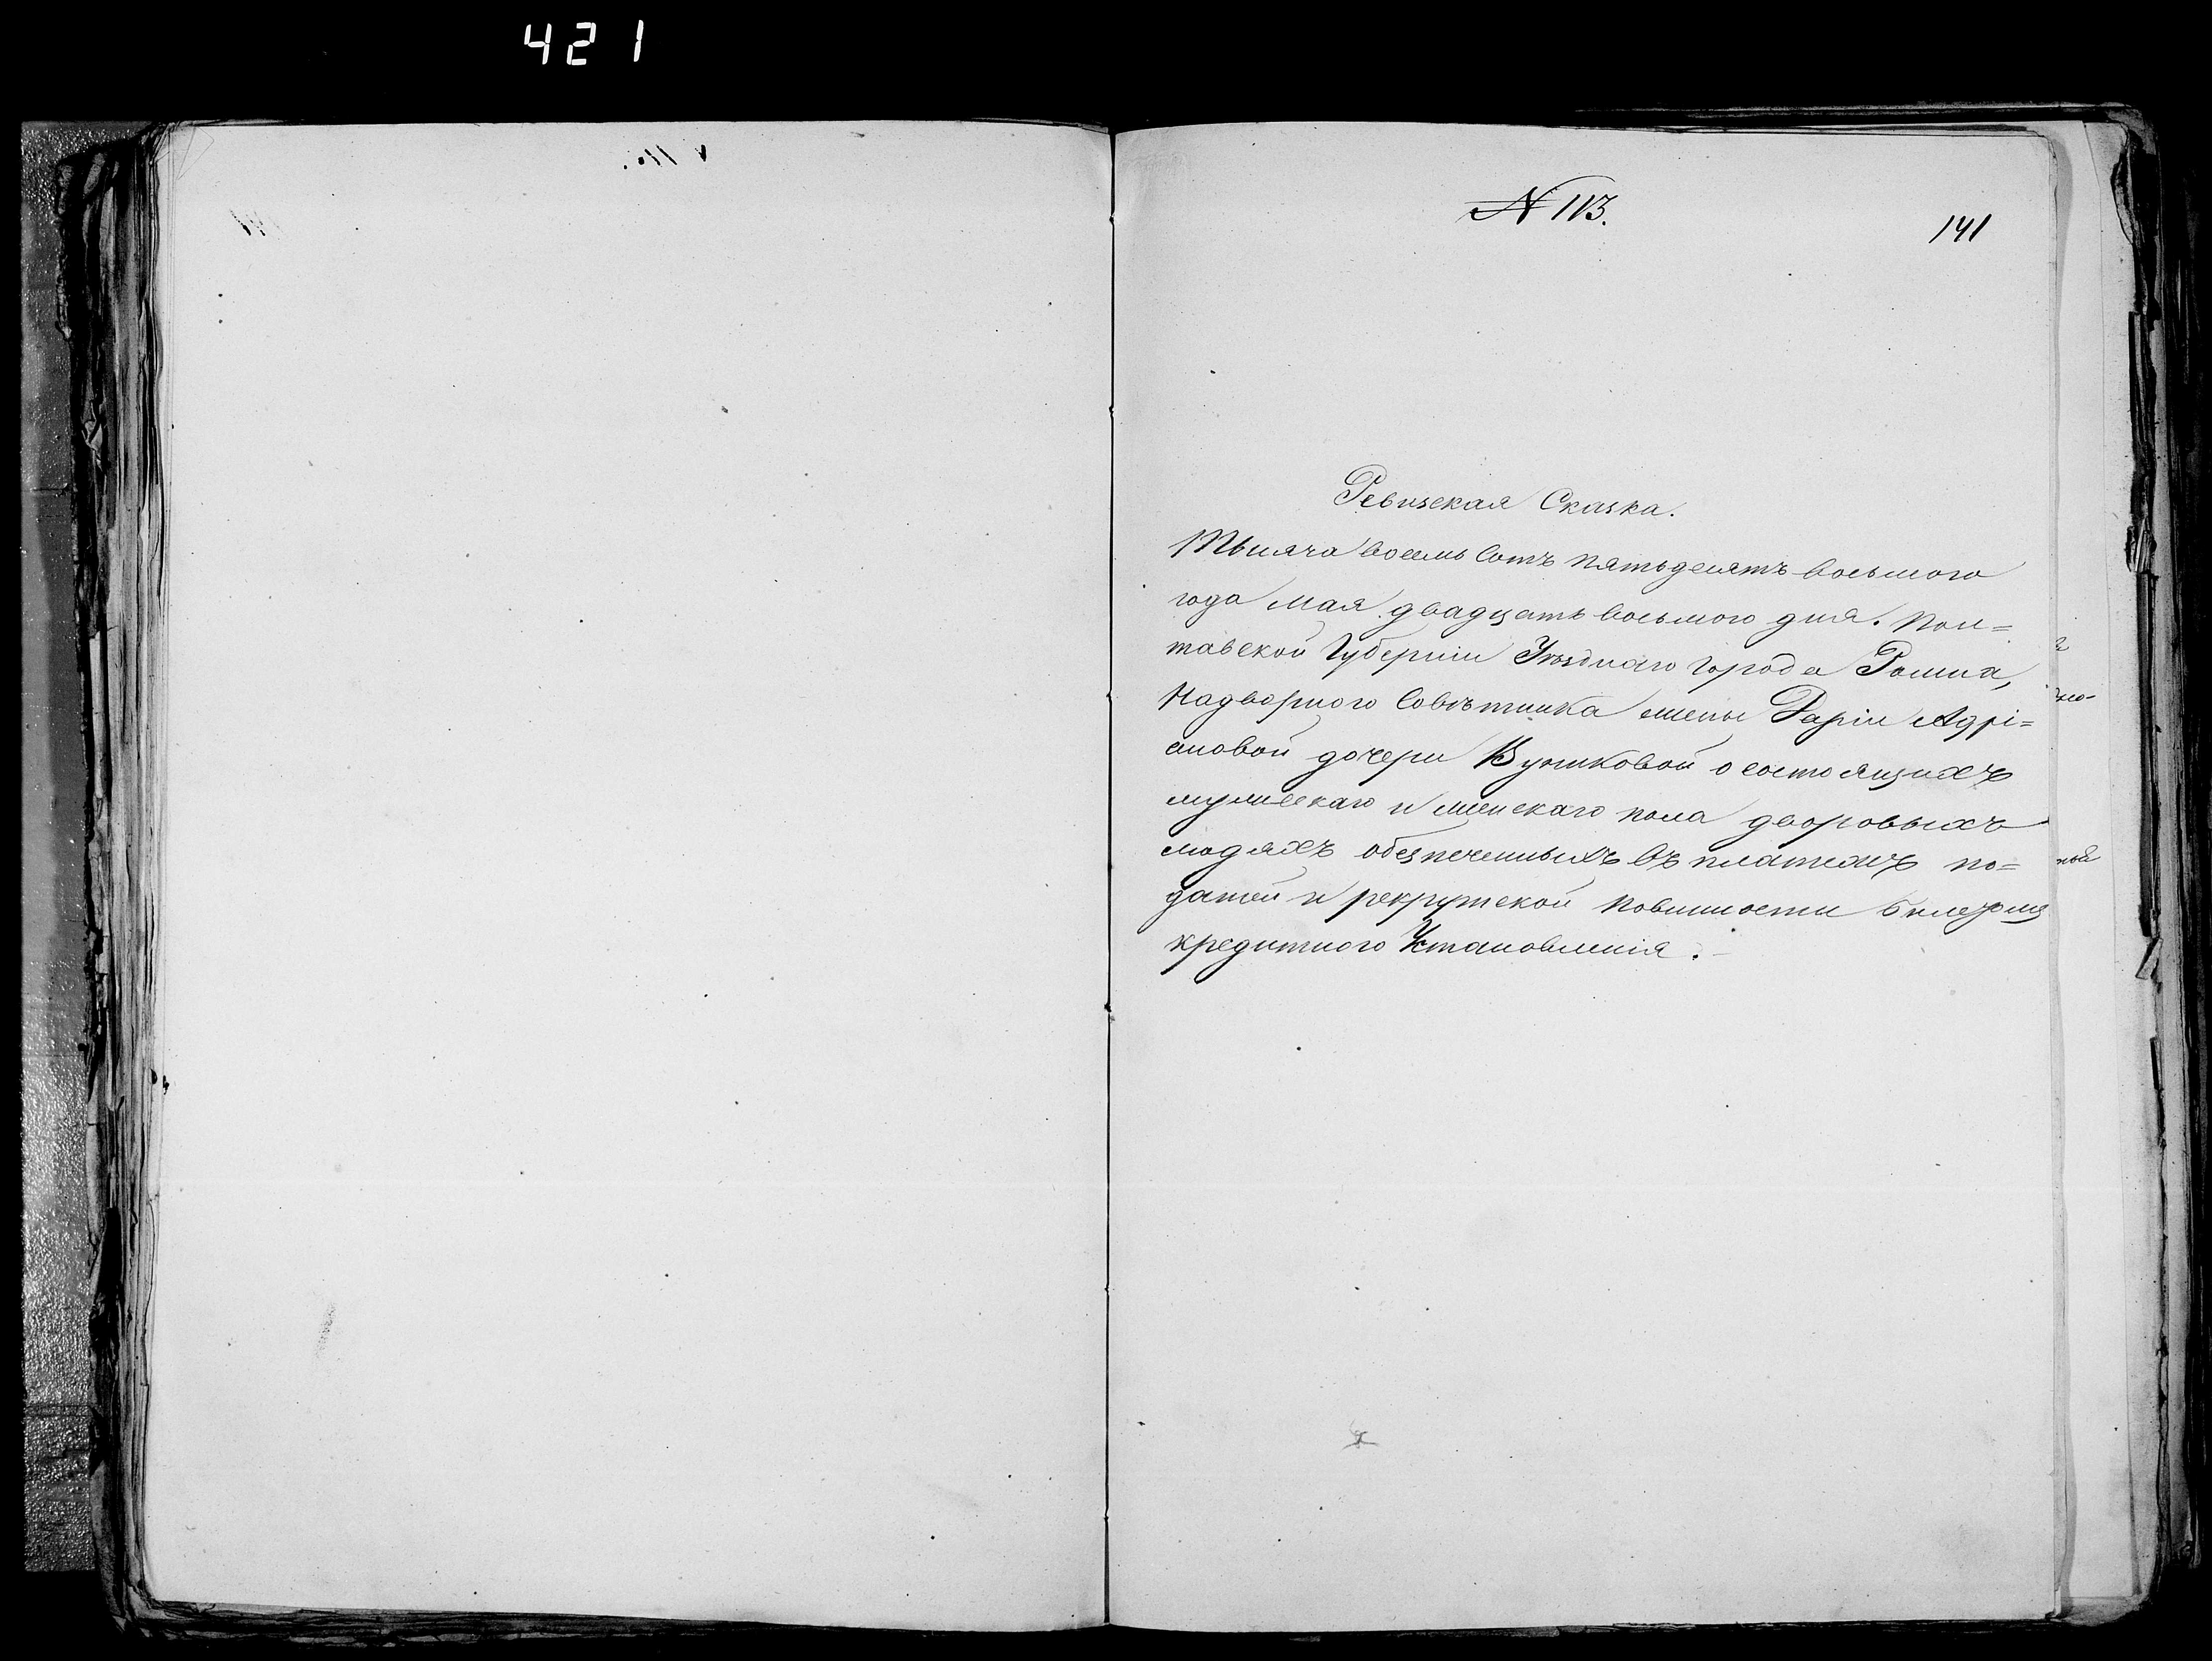 421
N 113.
141
Ревизская Сказка.
Тысяча восемь сотъ пятьдесятъ восьмого
года мая двадцать восьмого дня. Пол=
тавской Губерніи Уѣзднаго города Ромна,
Надворного Совѣтника жены Даріи Адрі=
ановой дочери о состоящихъ
мужескаго и женскаго пола дворовыхъ
людяхъ обезпеченныхъ въ платежѣ по=
датей и рекрутской повинности билетомъ
кредитного Установленія.